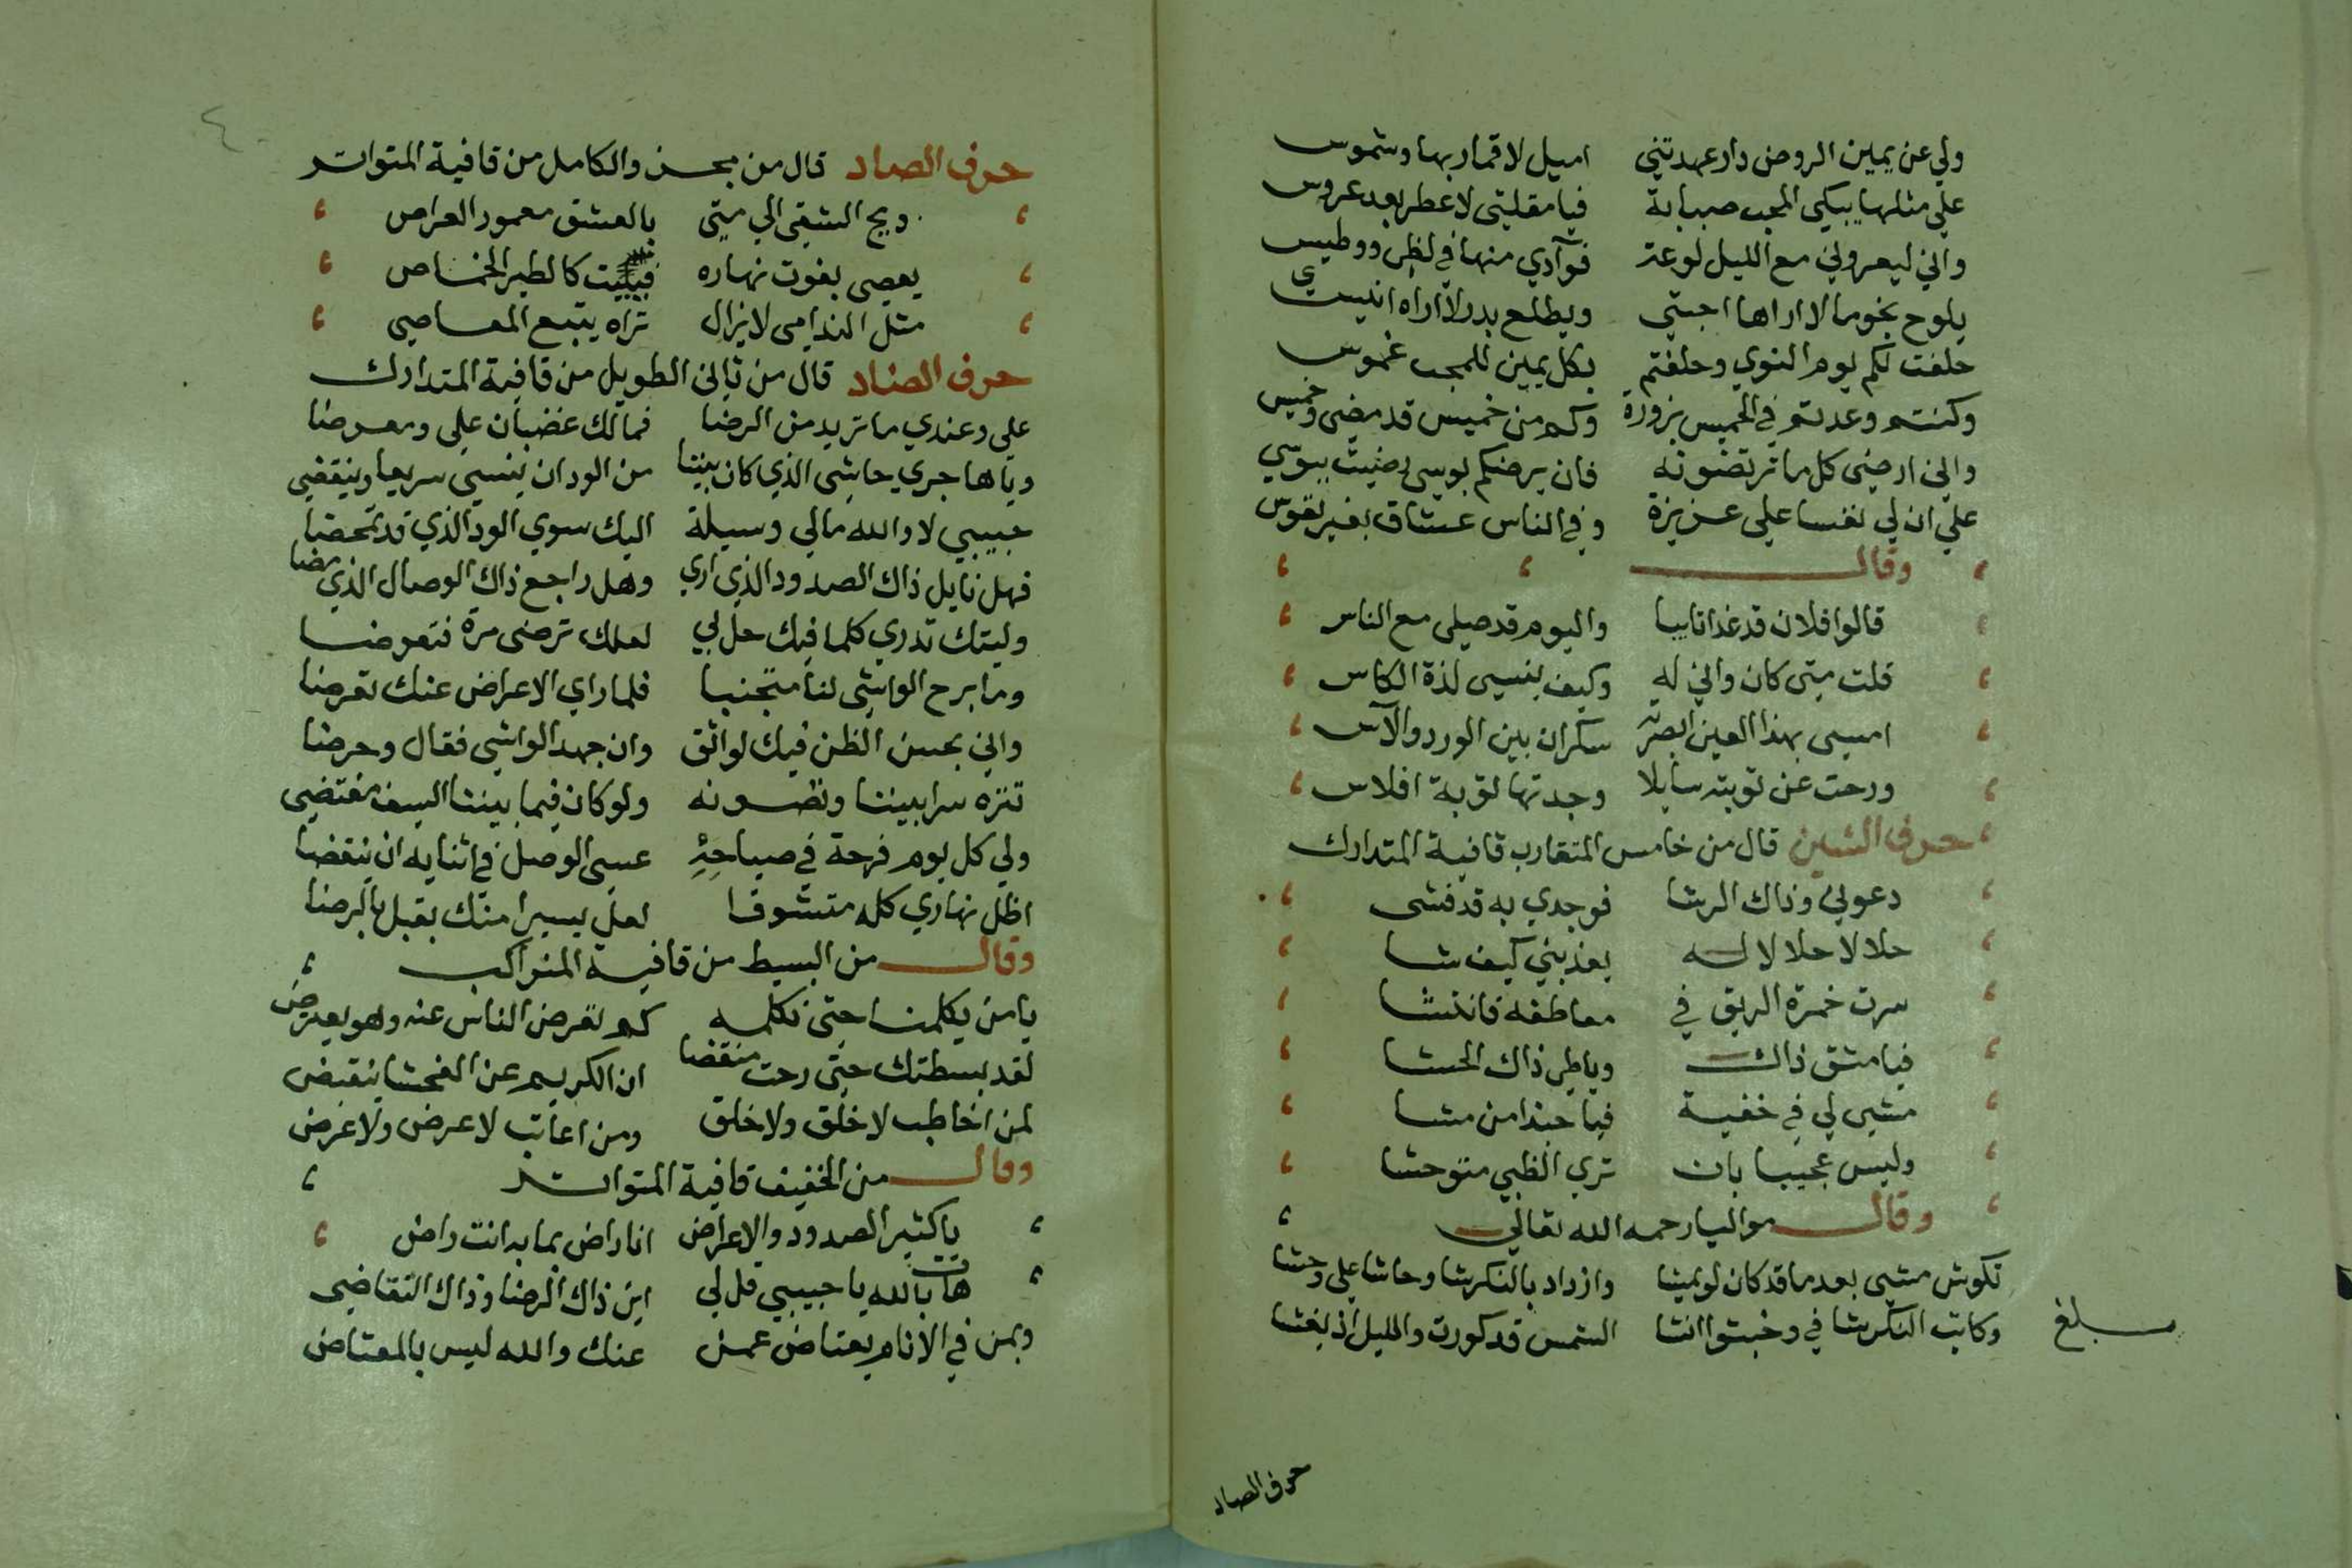 ولي عن يمين الروض دار عهدتني اميل لاقمار بها وشموس
علي مثلها يبكي المحب صبابة فيا مقلتي لا عطر بعد عروس
واني ليعروني مع الليل لوعة فوآدي منها في لظى ووطيس
يلوح نجوما لا اراها احبتي ويطلع بدر لا اراه انيسي
حلفت لكم يوم النوي وحلفتم بكل يمين للمحب غموس
وكنتم وعدتم في الخميس بزورة وكم من خميس قد مضي وخميس
واني ارضي كل ما ترتضونه فان يرضكم بوسي رضيت ببوسي
علي ان لي نفسا علي عزيزة وفي الناس عشاق بغير نفوس
وقال
قالوا فلان قد غدا تايبا واليوم قد صلي مع الناس
قلت متي كان واني له وكيف ينسي لذة الكاس
امسي بهذا العين ابصرته سكران بين الورد والآس
ورحت عن توبته سايلا وجدتها توبة افلاس
حرف الشين قال من خامس المتقارب قافية المتدارك
دعوني وذاك الرشا فوجدي به قد فشى
حلالا حلالا له يعذبني كيف شا
سرت خمرة الريق في معاطفه فانتشا
فيا مشق ذاك وياطي ذاك الحشا
مشي لي في خفية فيا حبذا من مشا
وليس عجيبا بان تري الظبي متوحشا
وقال مواليا رحمه الله تعالي
نكوش مشي بعدما قد كان لو يمشا وازداد بالنكرشا وحاشا علي وحشا
وكاتب النكرشا في وخبتوا انشا الشمس قد كورت والليل اذ يغشا
مبلغ
حرف الصاد
حرف الصاد قال من مجزو الكامل من قافية المتواتر
ويح الشقي الي متي بالعشق معمور العراص
يعصي بفوت نهاره فيبيت كالطير الخماص
مثل الندامي لا يزال تراه يتبع المعاصي
حرف الضاد قال من ثاني الطويل من قافية المتدارك
علي وعندي ما تريد من الرضا فمالك غضبان علي ومعرضا
وياها جري حاشي الذي كان بيننا من الود ان ينسي سريعا وينقضي
حبيبي لا والله مالي وسيلة اليك سوي الود الذي قد تمحضا
فهل نايل ذاك الصدود الذي اري وهل راجع ذاك الوصال الذي مضا
وليتك تدري كلما فيك حل لي لعلك ترضي مرة فتعوضا
وما برح الواشي لنا متجنبا فلما راي الاعراض عنك تعرضا
واني بحسن الظن فيك لواثق وان جهد الواشي فقال وحرضا
تنزه سرا بيننا ونصونه ولو كان فيما بيننا السيف مقتضي
ولي كل يوم فرحة في صباحه عسي الوصل في اثنايه ان ينقضا
اظل نهاري كله متشوفا لعل يسيرا منك يقبل بالرضا
وقال من البسيط من قافية المتراكب
يا من يكلمنا حتي نكلمه كم تعرض الناس عنه وهو يعترض
لقد بسطتك حتي رحت منقضا ان الكريم عن الفحشا ينقبض
لمن اخاطب لا خلق ولا خلق ومن اعاتب لا عرض ولا غرض
وقال من الخفيف قافية المتواتر
يا كثير الصدود والاعراض انا راض بما به انت راض
هات بالله يا حبيبي قل لي اين ذاك الرضا وذاك التقاضي
وبمن في الانام يعتاض عمن عنك والله ليس بالمعتاض